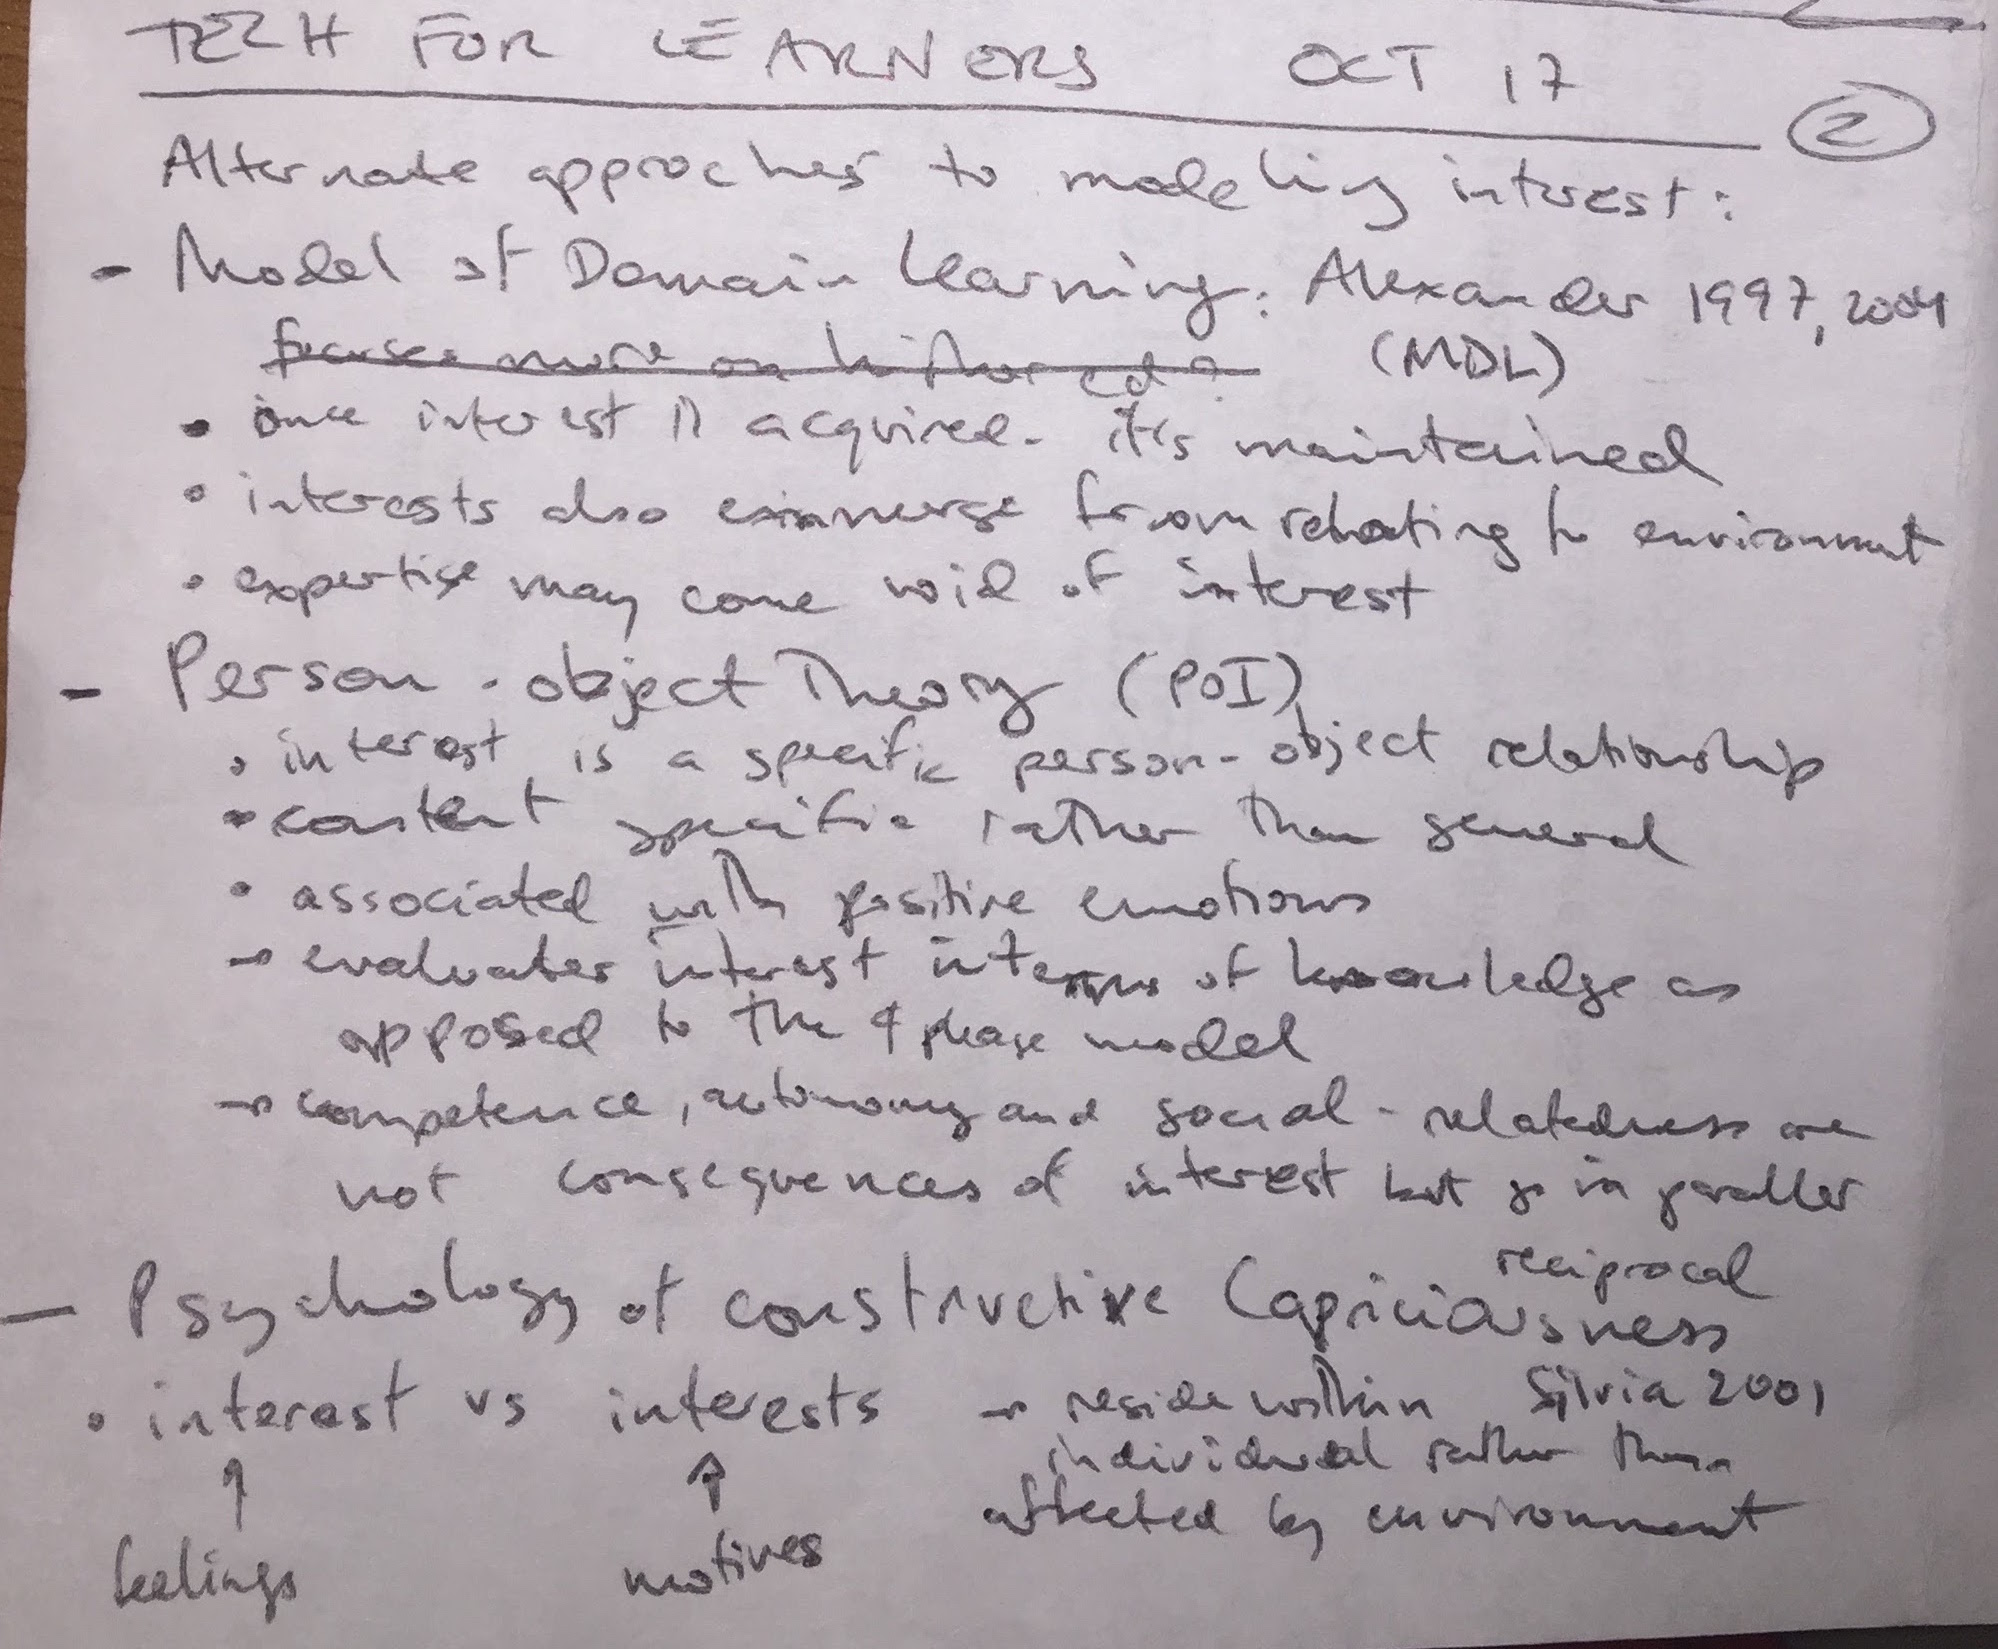 TECH FOR LEARNERS OCT 17
2
Alternate approaches to modeling interest:
- Model of Domain Learning: Alexander 1997, 2004
focuses more on higher ed? (MDL)
• once interest is acquired - it's maintained
• interests also emmerge from relating to environment
• expertise may come void of interest
- Person-object Theory (POI)
• interest is a specific person-object relationship
• content specific rather than general
• associated with positive emotions
→ evaluates interest in terms of knowledge as
opposed to the 4 phase model
→ competence, autonomy and social-relatedness are
not consequences of interest but go in parallel
reciprocal
- Psychology of constructive Capriciousness
• interest vs interests → reside within Silvia 2001
individual rather than
affected by environment
↑ ↑
feelings motives